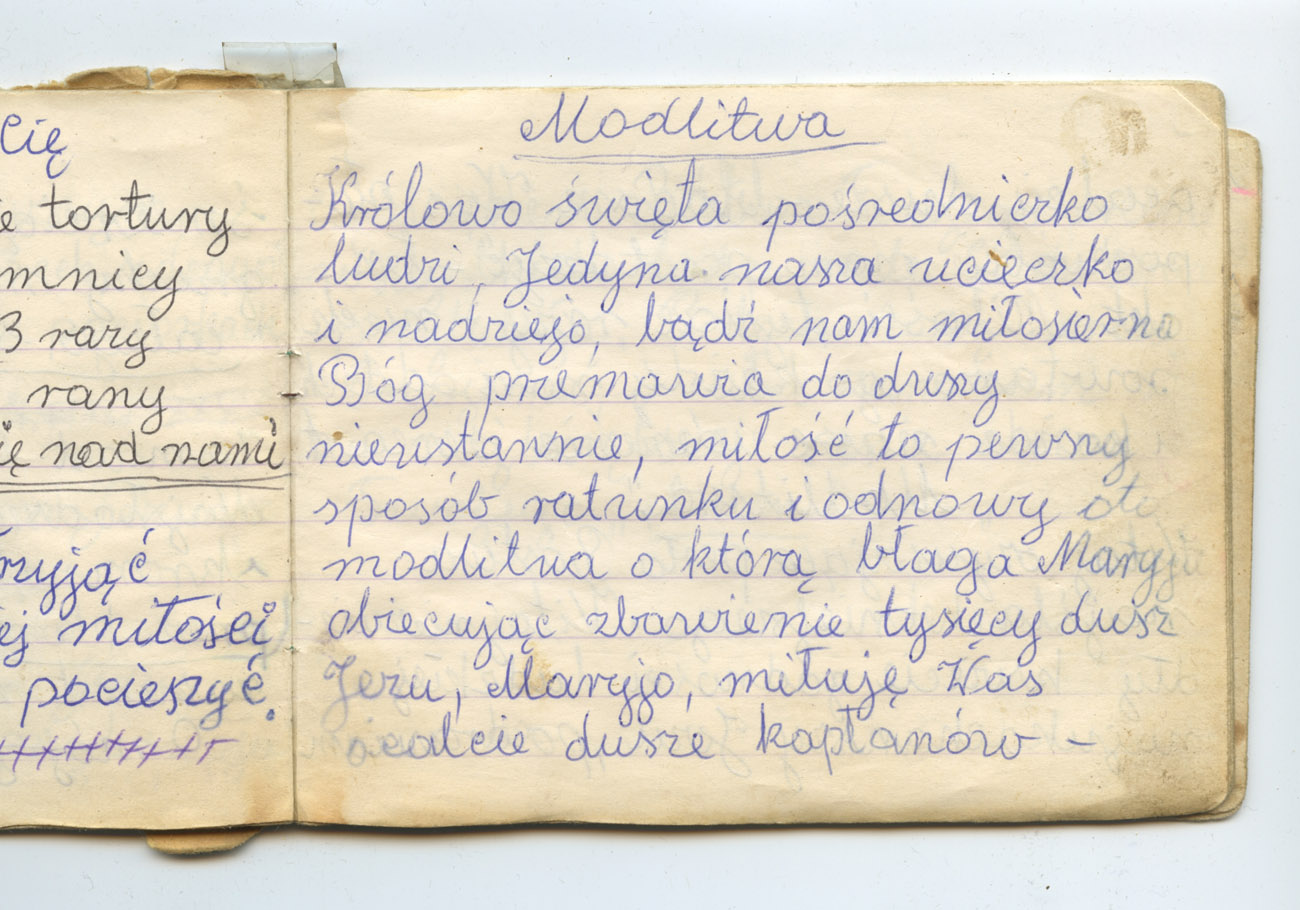 Cię
tortury
mnicy
3 razy
rany
ię nad nami
rzyjąć
ej miłości
pocieszyć.
Modlitwa
Królowo święta pośredniczko
ludzi, Jedyna nasza ucieczko
i nadziejo, bądź nam miłosierna
Bóg przemawia do duszy
nieustannie, miłość to pewny
sposób ratunku i odnowy oto
modlitwa o którą błaga Maryja
obiecując zbawienie tysięcy dusz
Jezu, Maryjo, miłuję Was
ocalcie dusze kapłanów –